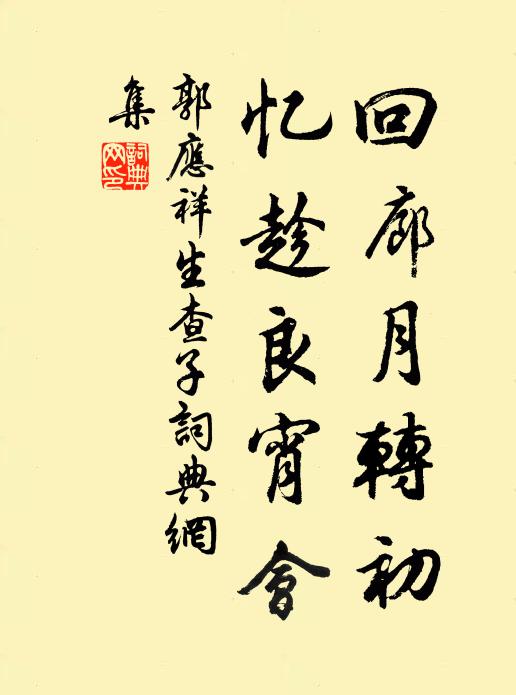 回廊月轉初
忆趁良宵會
郭應祥生查子詞典網
集
詞典網印